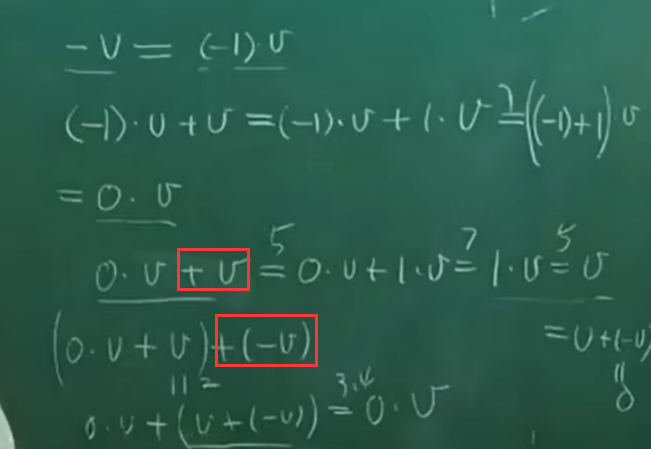 -v = (-1)·v
(-1)·v + v = (-1)·v + 1·v =⁷ ((-1)+1)·v
= 0·v
0·v + v =⁵ 0·v + 1·v =⁷ 1·v =⁵ v
(0·v + v) + (-v) = v + (-v)
|| 2
0·v + (v + (-v)) =³·⁴ 0·v